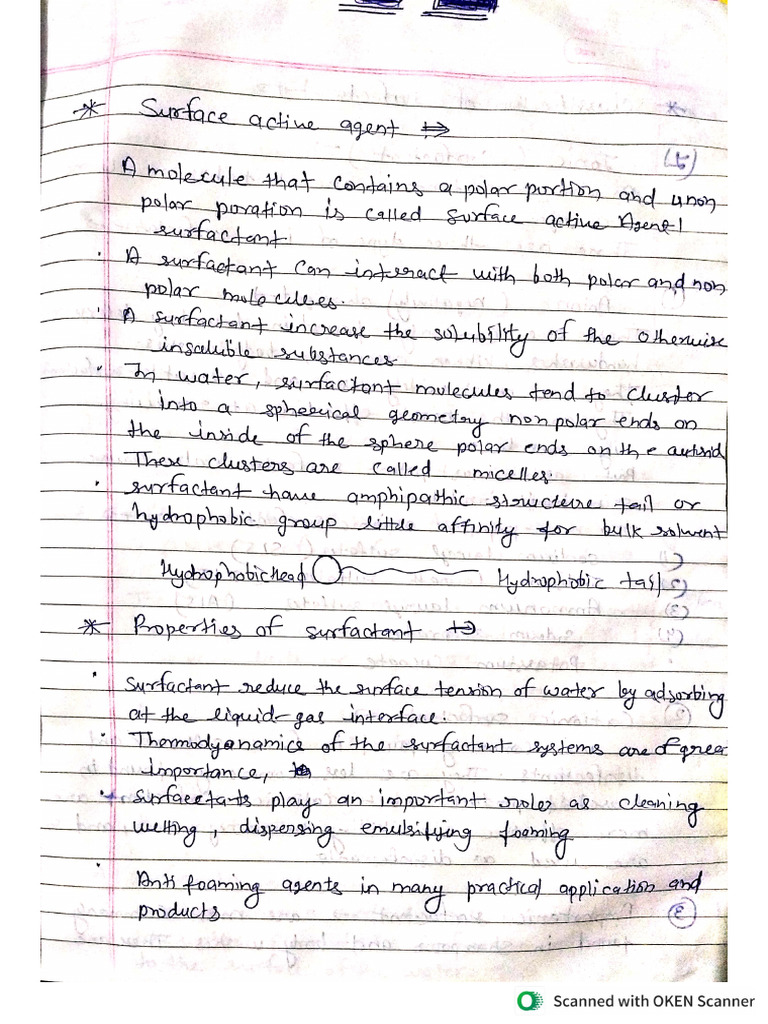 * Surface active agent ⇒
A molecule that contains a polar portion and unon
polar poration is called surface active Agent /
surfactant.
· A surfactant can interact with both polar and non
polar molecules.
· A surfactant increase the solubility of the otherwise
insaluble substances
· In water, surfactant molecules tend to cluster
into a spherical geometry non polar ends on
the inside of the sphere polar ends on the
These clusters are called micelles.
· surfactant have amphipathic structure tail or
hydrophobic group little affinity for bulk solvent
Hydrophobic head Hydrophobic tail
* Properties of surfactant →
· Surfactant reduce the surface tension of water by adsorbing
at the liquid-gas interface.
· Thermodynamics of the surfactant systems are of grea
importance,
· surfaectats play an important roles as cleaning
wetting, dispersing emulsifying foaming
· Anti foaming agents in many practical application and
products
Scanned with OKEN Scanner